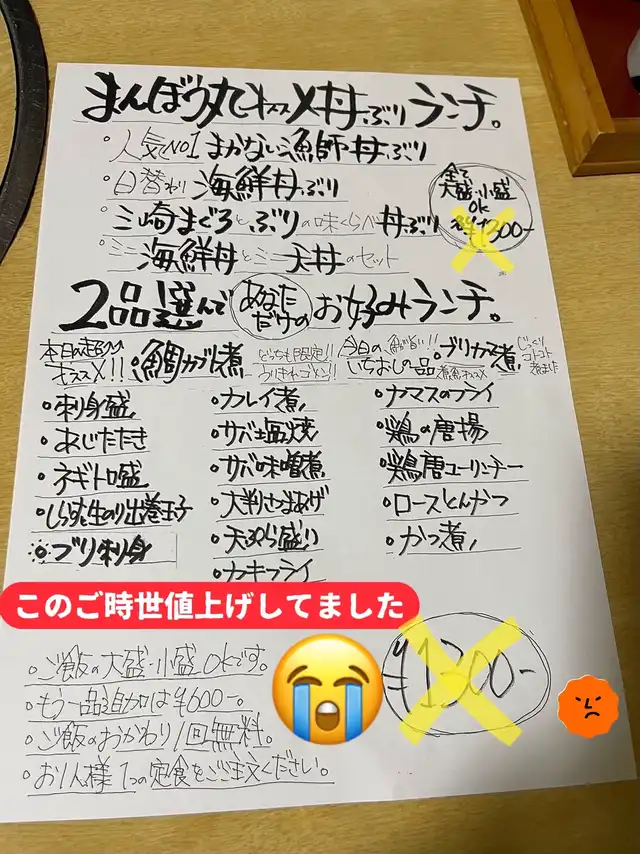 まんぼう丸オススメ丼ぶりランチ。
・人気No1 まかない漁師丼ぶり
・日替わり 海鮮丼ぶり
・三崎まぐろとぶりの味くらべ丼ぶり
・ミニ海鮮丼とミニ天丼のセット
全て
大盛・小盛
OK
¥1300-
2品選んであなただけのお好みランチ。
本日の超オススメ!!
・鯛カブト煮
どちらも限定!!
うりきれゴメン!!
今日の
いちおしの品
・ブリカマ煮
煮魚オススメ
じっくり
コトコト
煮ました
・刺身盛
・あじたたき
・ネギトロ盛
・しらすと生のり出巻玉子
・ブリ刺身
・カレイ煮
・サバ塩焼
・サバ味噌煮
・大判さつまあげ
・天ぷら盛り
・カキフライ
・ナマズのフライ
・鶏の唐揚
・鶏唐ユーリンチー
・ロースとんかつ
・かつ煮
このご時世値上げしてました
・ご飯の大盛・小盛OKです。
・もう一品追加は¥600-。
・ご飯のおかわり1回無料。
・お1人様1つの定食をご注文ください。
¥1300-